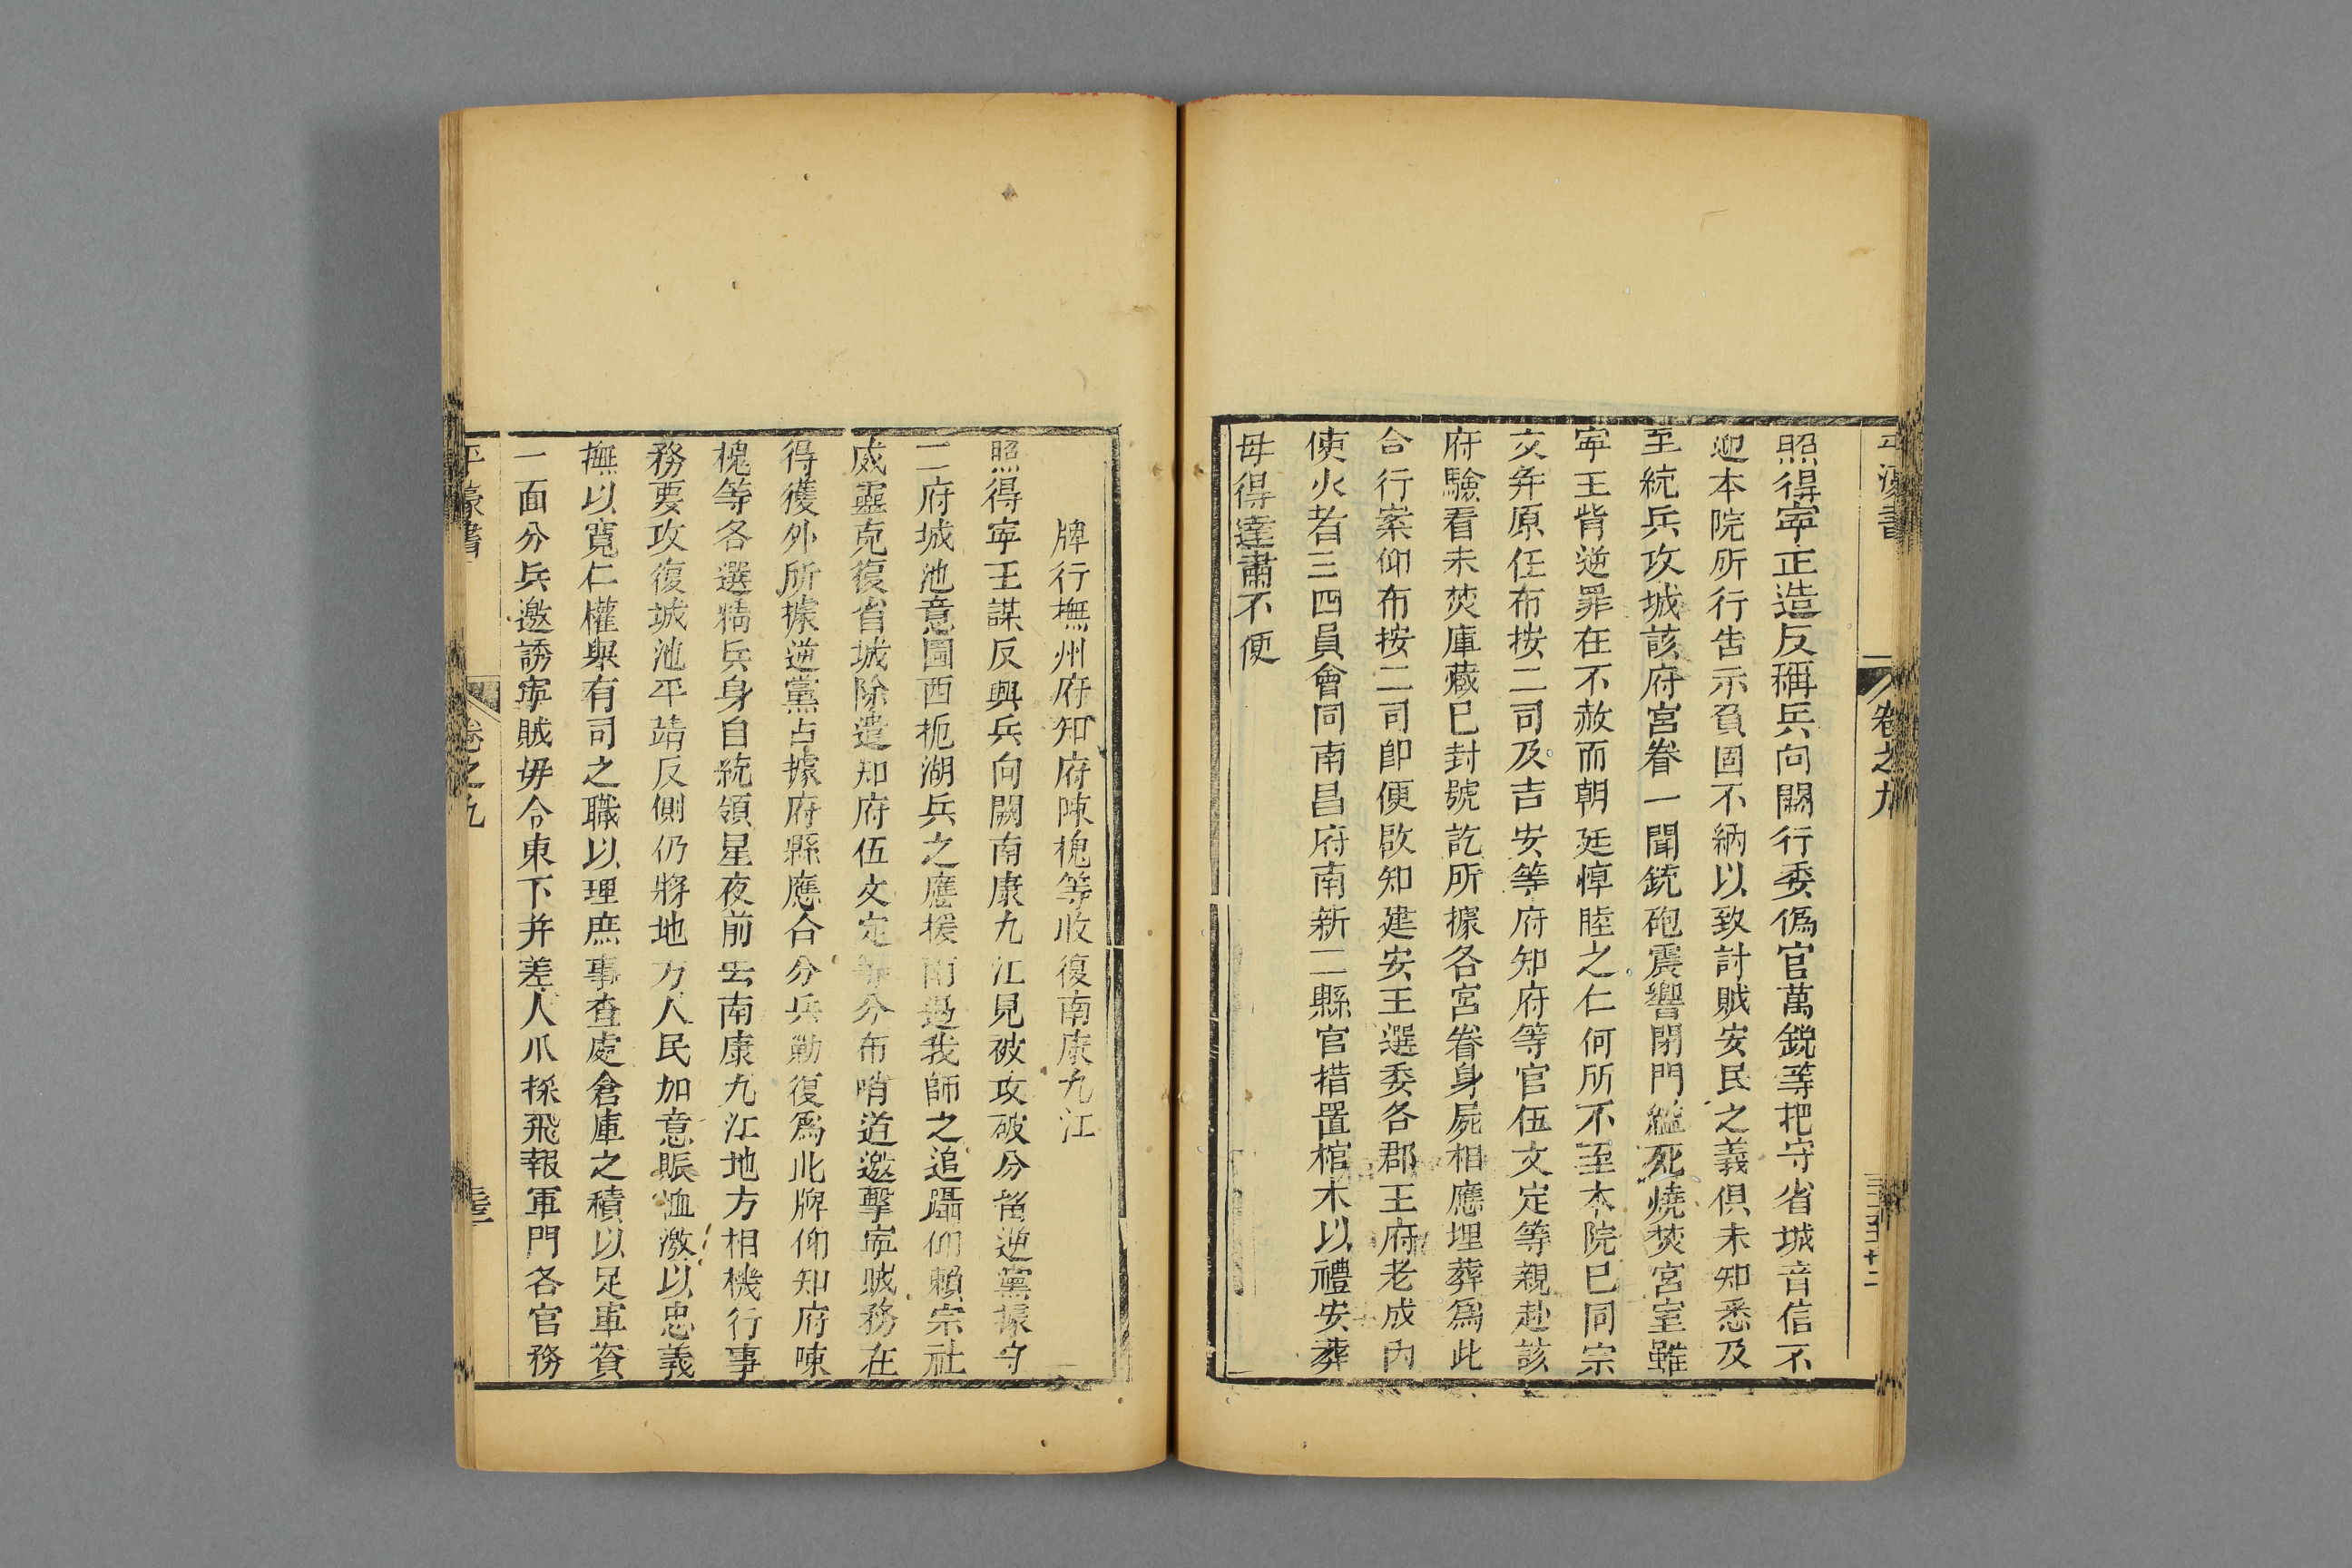 卷之九
照得寧王造反稱兵向闕行委僞官萬銳等把守省城音信不
迎本院所行告示負固不納以致討賊安民之義俱未知悉及
至統兵攻城該府宮眷一聞銃砲震響閉門縊死燒焚宮室雖
寧王背逆罪在不赦而朝廷惇睦之仁何所不至本院已同宗
交弁原任布按二司及吉安等府知府等官伍文定等親赴該
府驗看未焚庫藏已封號訖所據各宮眷身屍相應埋葬爲此
合行案仰布按二司即便啟知建安王選委各郡王府老成內
使火者三四員會同南昌府南新二縣官措置棺木以禮安葬
毋得違肅不便
牌行撫州府知府陳槐等收復南康九江
照得寧王謀反興兵向闕南康九江見破攻破分留逆黨據守
二府城池意圖西扼湖兵之應援南遏我師之追躡仰賴宗社
威靈克復省城除遣知府伍文定等分布哨道邀擊寧賊務在
得獲外所據逆黨占據府縣應合分兵勦復爲此牌仰知府陳
槐等各選精兵身自統領星夜前去南康九江地方相機行事
務要攻復城池平靖反側仍將地方人民加意賑恤激以忠義
撫以寬仁權舉有司之職以理庶事查處倉庫之積以足軍資
一面分兵邀誘寧賊毋令東下并差人爪探飛報軍門各官務
平濠書 卷之九